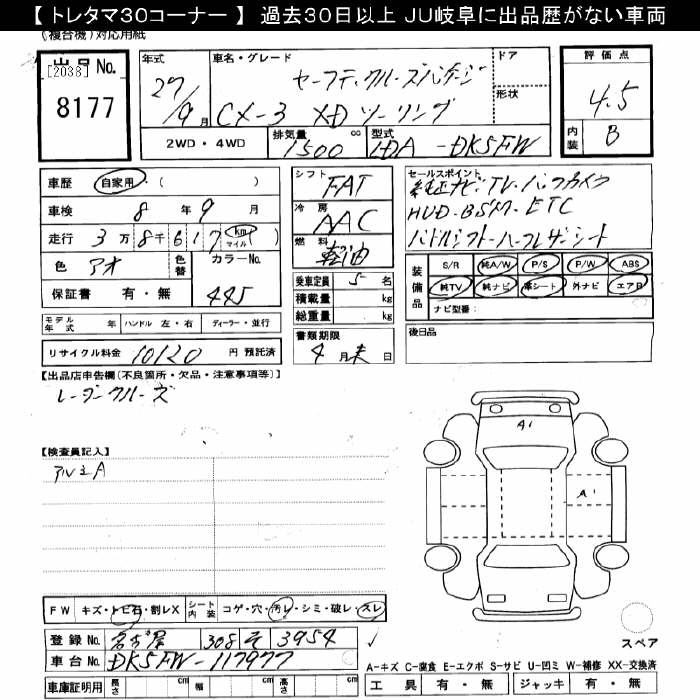 【 トレタマ30コーナー 】 過去30日以上 JU岐阜に出品歴がない車両
(複合機)対応用紙
出品No.
[2038]
8177
年式 27/9月
車名・グレード セーフティクルーズパッケージ
CX-3 XDツーリング
ドア
形状
評価点
4.5
内装 B
2WD・4WD 排気量 1500 cc 型式 LDA-DK5FW
車歴 自家用・( )
車検 8年9月
走行 3万8千617 km マイル( )
色 アオ 色替 カラーNo.
保証書 有・無 44S
シフト FAT
冷房 AAC
燃料 軽油
乗車定員 5名
積載量 kg
総重量 kg
書類期限
4月末日
セールスポイント
純正ナビ・TV・バックカメラ
HUD・BSM・ETC
パドルシフト・ハーフレザーシート
装備品 S/R 純A/W P/S P/W ABS
純TV 純ナビ 革シート 外ナビ エアB
ナビ型番:
後日品
モデル年式 年 ハンドル 左・右 ディーラー・並行
リサイクル料金 10120 円 預託済
【出品店申告欄(不良箇所・欠品・注意事項等)】
レーダークルーズ
【検査員記入】
アルミA
A1
A1
FW キズ・トビ石・割レX シート内装 コゲ・穴・汚レ・シミ・破レ・スレ
登録No. 名古屋 308 そ 3954
車台No. DK5FW-117977
車庫証明用 長さ cm 幅 cm 高さ cm
スペア
A-キズ C-腐食 E-エクボ S-サビ U-凹ミ W-補修 XX-交換済
工具 有・無 ジャッキ 有・無